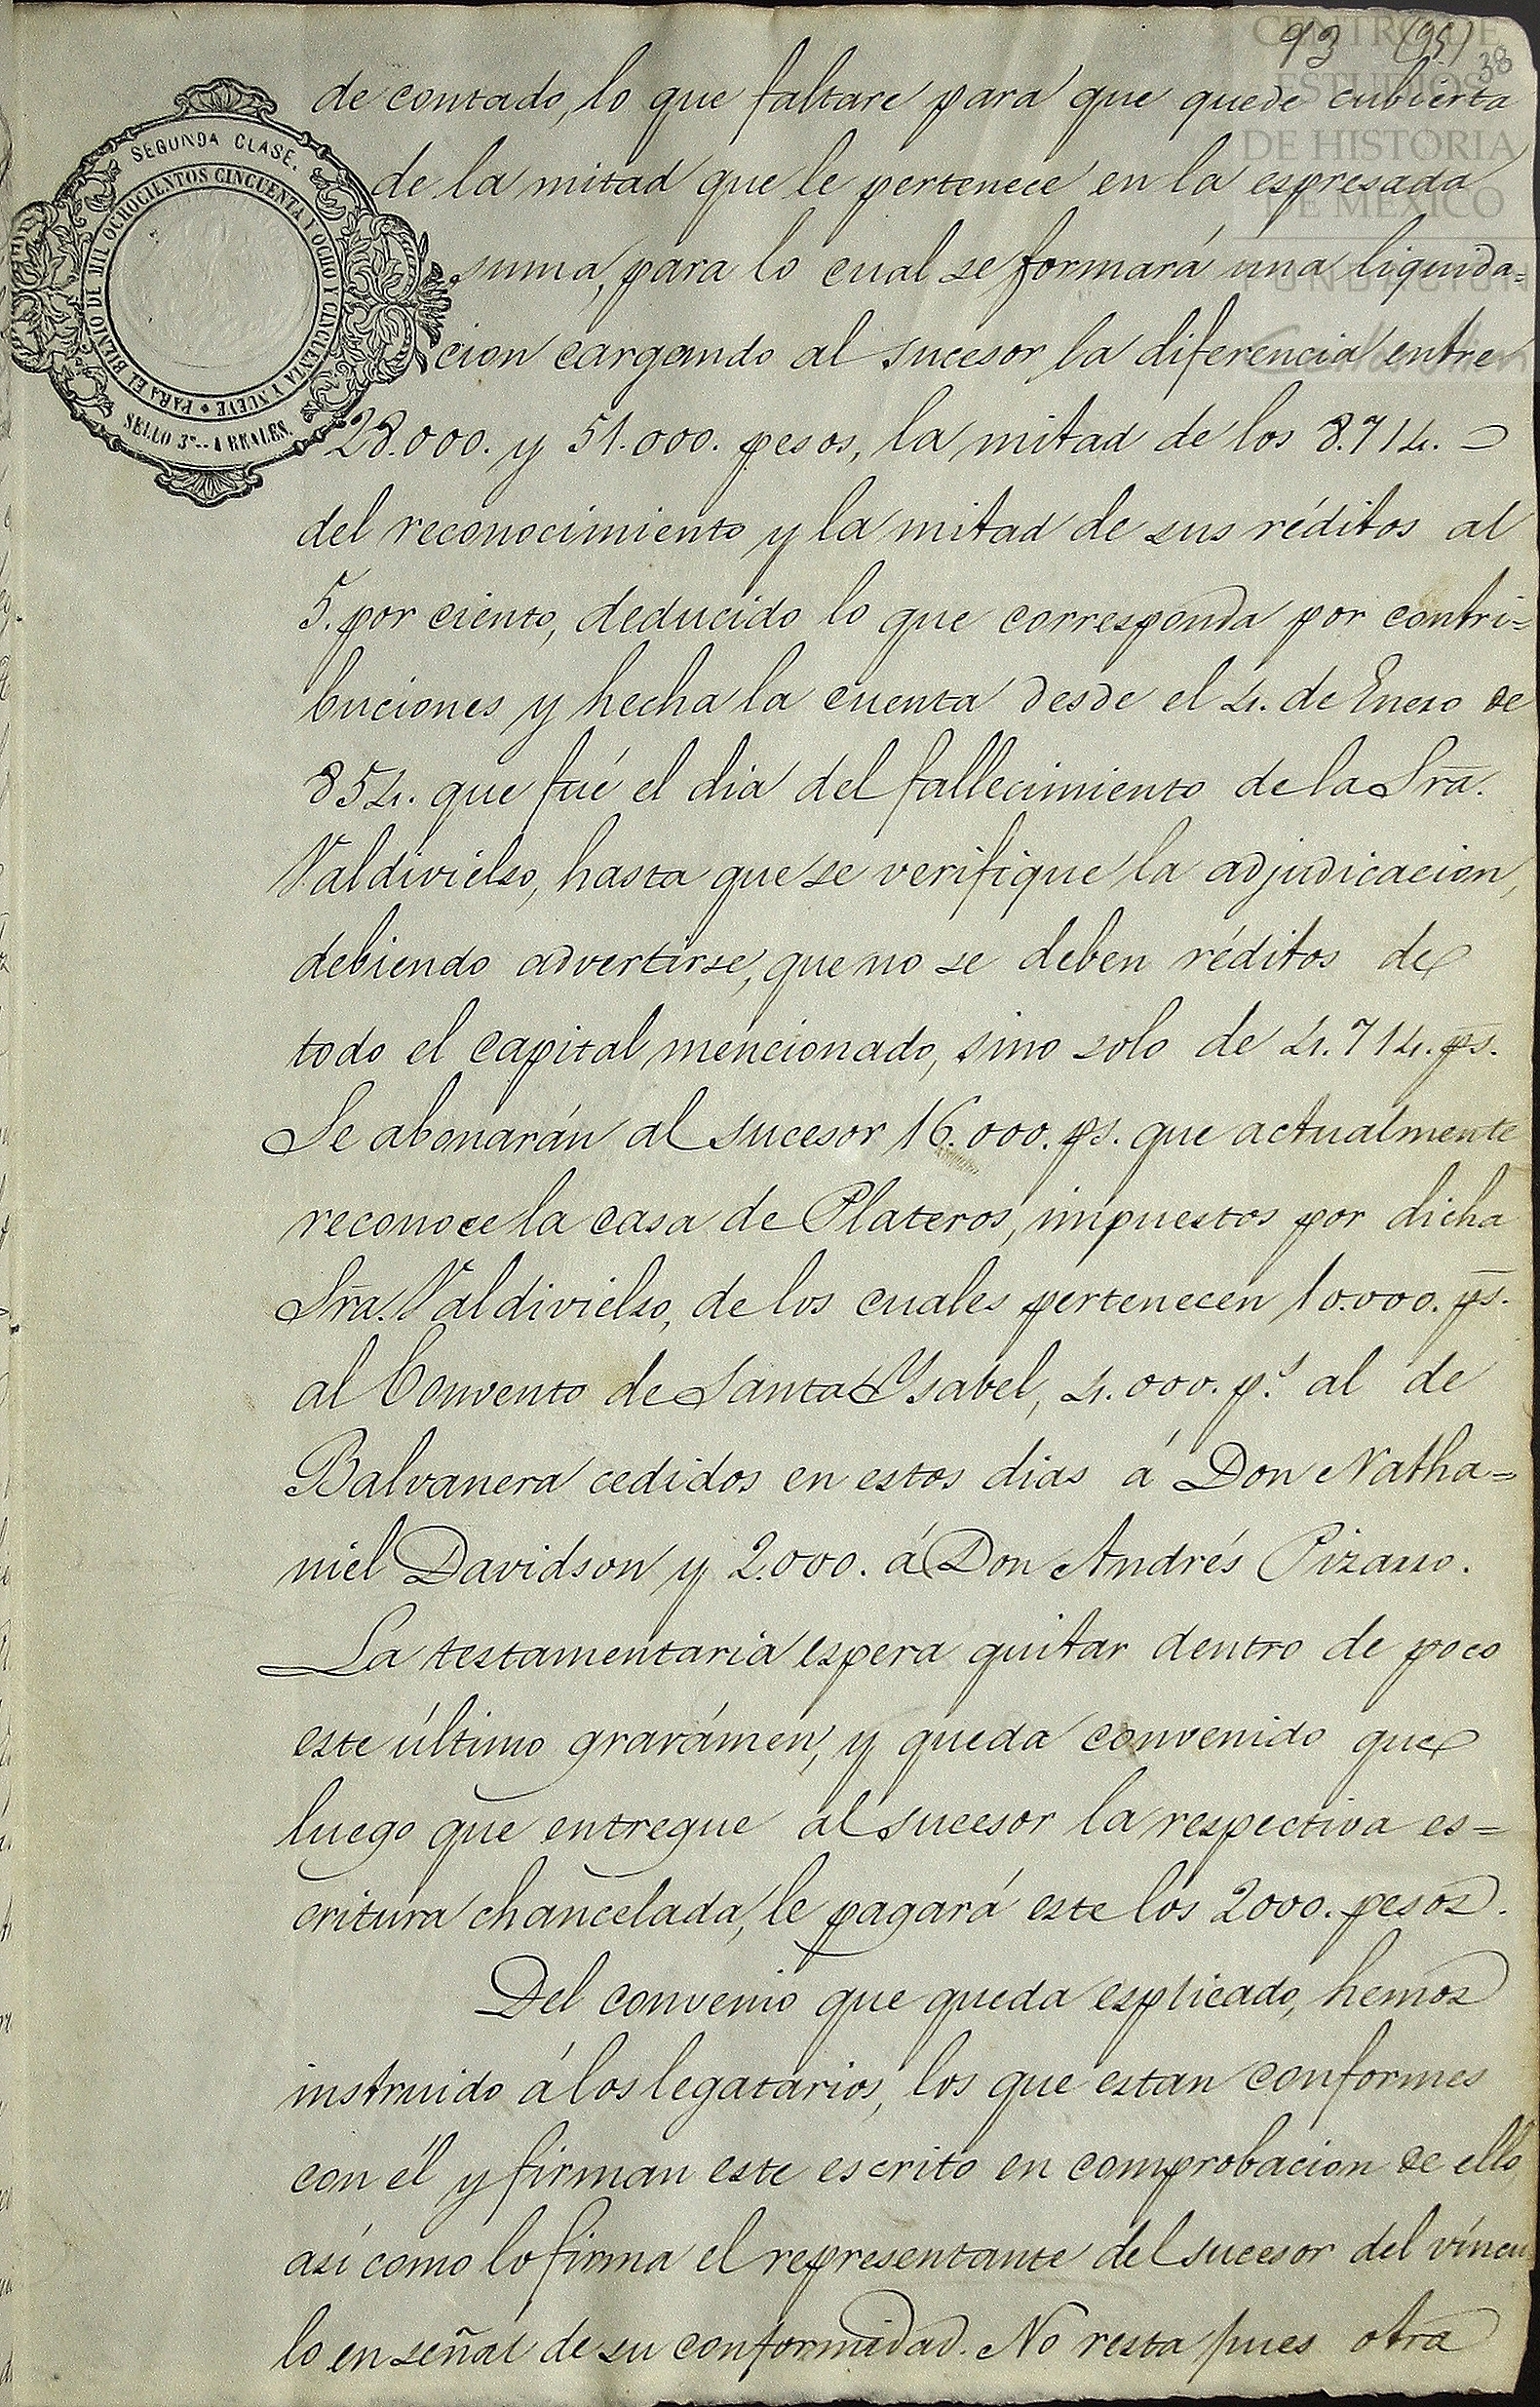 93 (95)
38
CENTRO DE
ESTUDIOS
DE HISTORIA
DE MEXICO
FUNDACIÓN
SEGUNDA CLASE.
PARA EL BIENIO DE MIL OCHOCIENTOS CINCUENTA I OCHO Y CINCUENTA Y NUEVE
SELLO 3º.. 4 REALES.
de contado, lo que faltare para que quede cubierta
de la mitad que le pertenece en la espresada
suma, para lo cual se formará una liquida=
cion cargando al sucesor la diferencia entre
28.000. y 51.000. pesos, la mitad de los 8.714.
del reconocimiento y la mitad de sus réditos al
5. por ciento, deducido lo que corresponda por contri=
buciones y hecha la cuenta desde el 4. de Enero de
854. que fué el dia del fallecimiento de la Sra.
Valdivielso, hasta que se verifique la adjudicacion,
debiendo advertirse, que no se deben réditos de
todo el capital mencionado, sino solo de 4.714. ps.
Se abonarán al sucesor 16.000. ps. que actualmente
reconoce la casa de Plateros, impuestos por dicha
Sra. Valdivielso, de los cuales pertenecen 10.000. ps.
al Convento de Santa Ysabel, 4.000. ps. al de
Balvanera cedidos en estos dias á Don Natha=
niel Davidson y 2.000. á Don Andrés Pizarro.
La testamentaria espera quitar dentro de poco
este último gravámen, y queda convenido que
luego que entregue al sucesor la respectiva es=
critura chancelada, le pagará este los 2000. pesos.
Del convenio que queda esplicado, hemos
instruido á los legatarios, los que estan conformes
con él y firman este escrito en comprobacion de ello,
así como lo firma el representante del sucesor del víncu
lo en señal de su conformidad. No resta pues otra